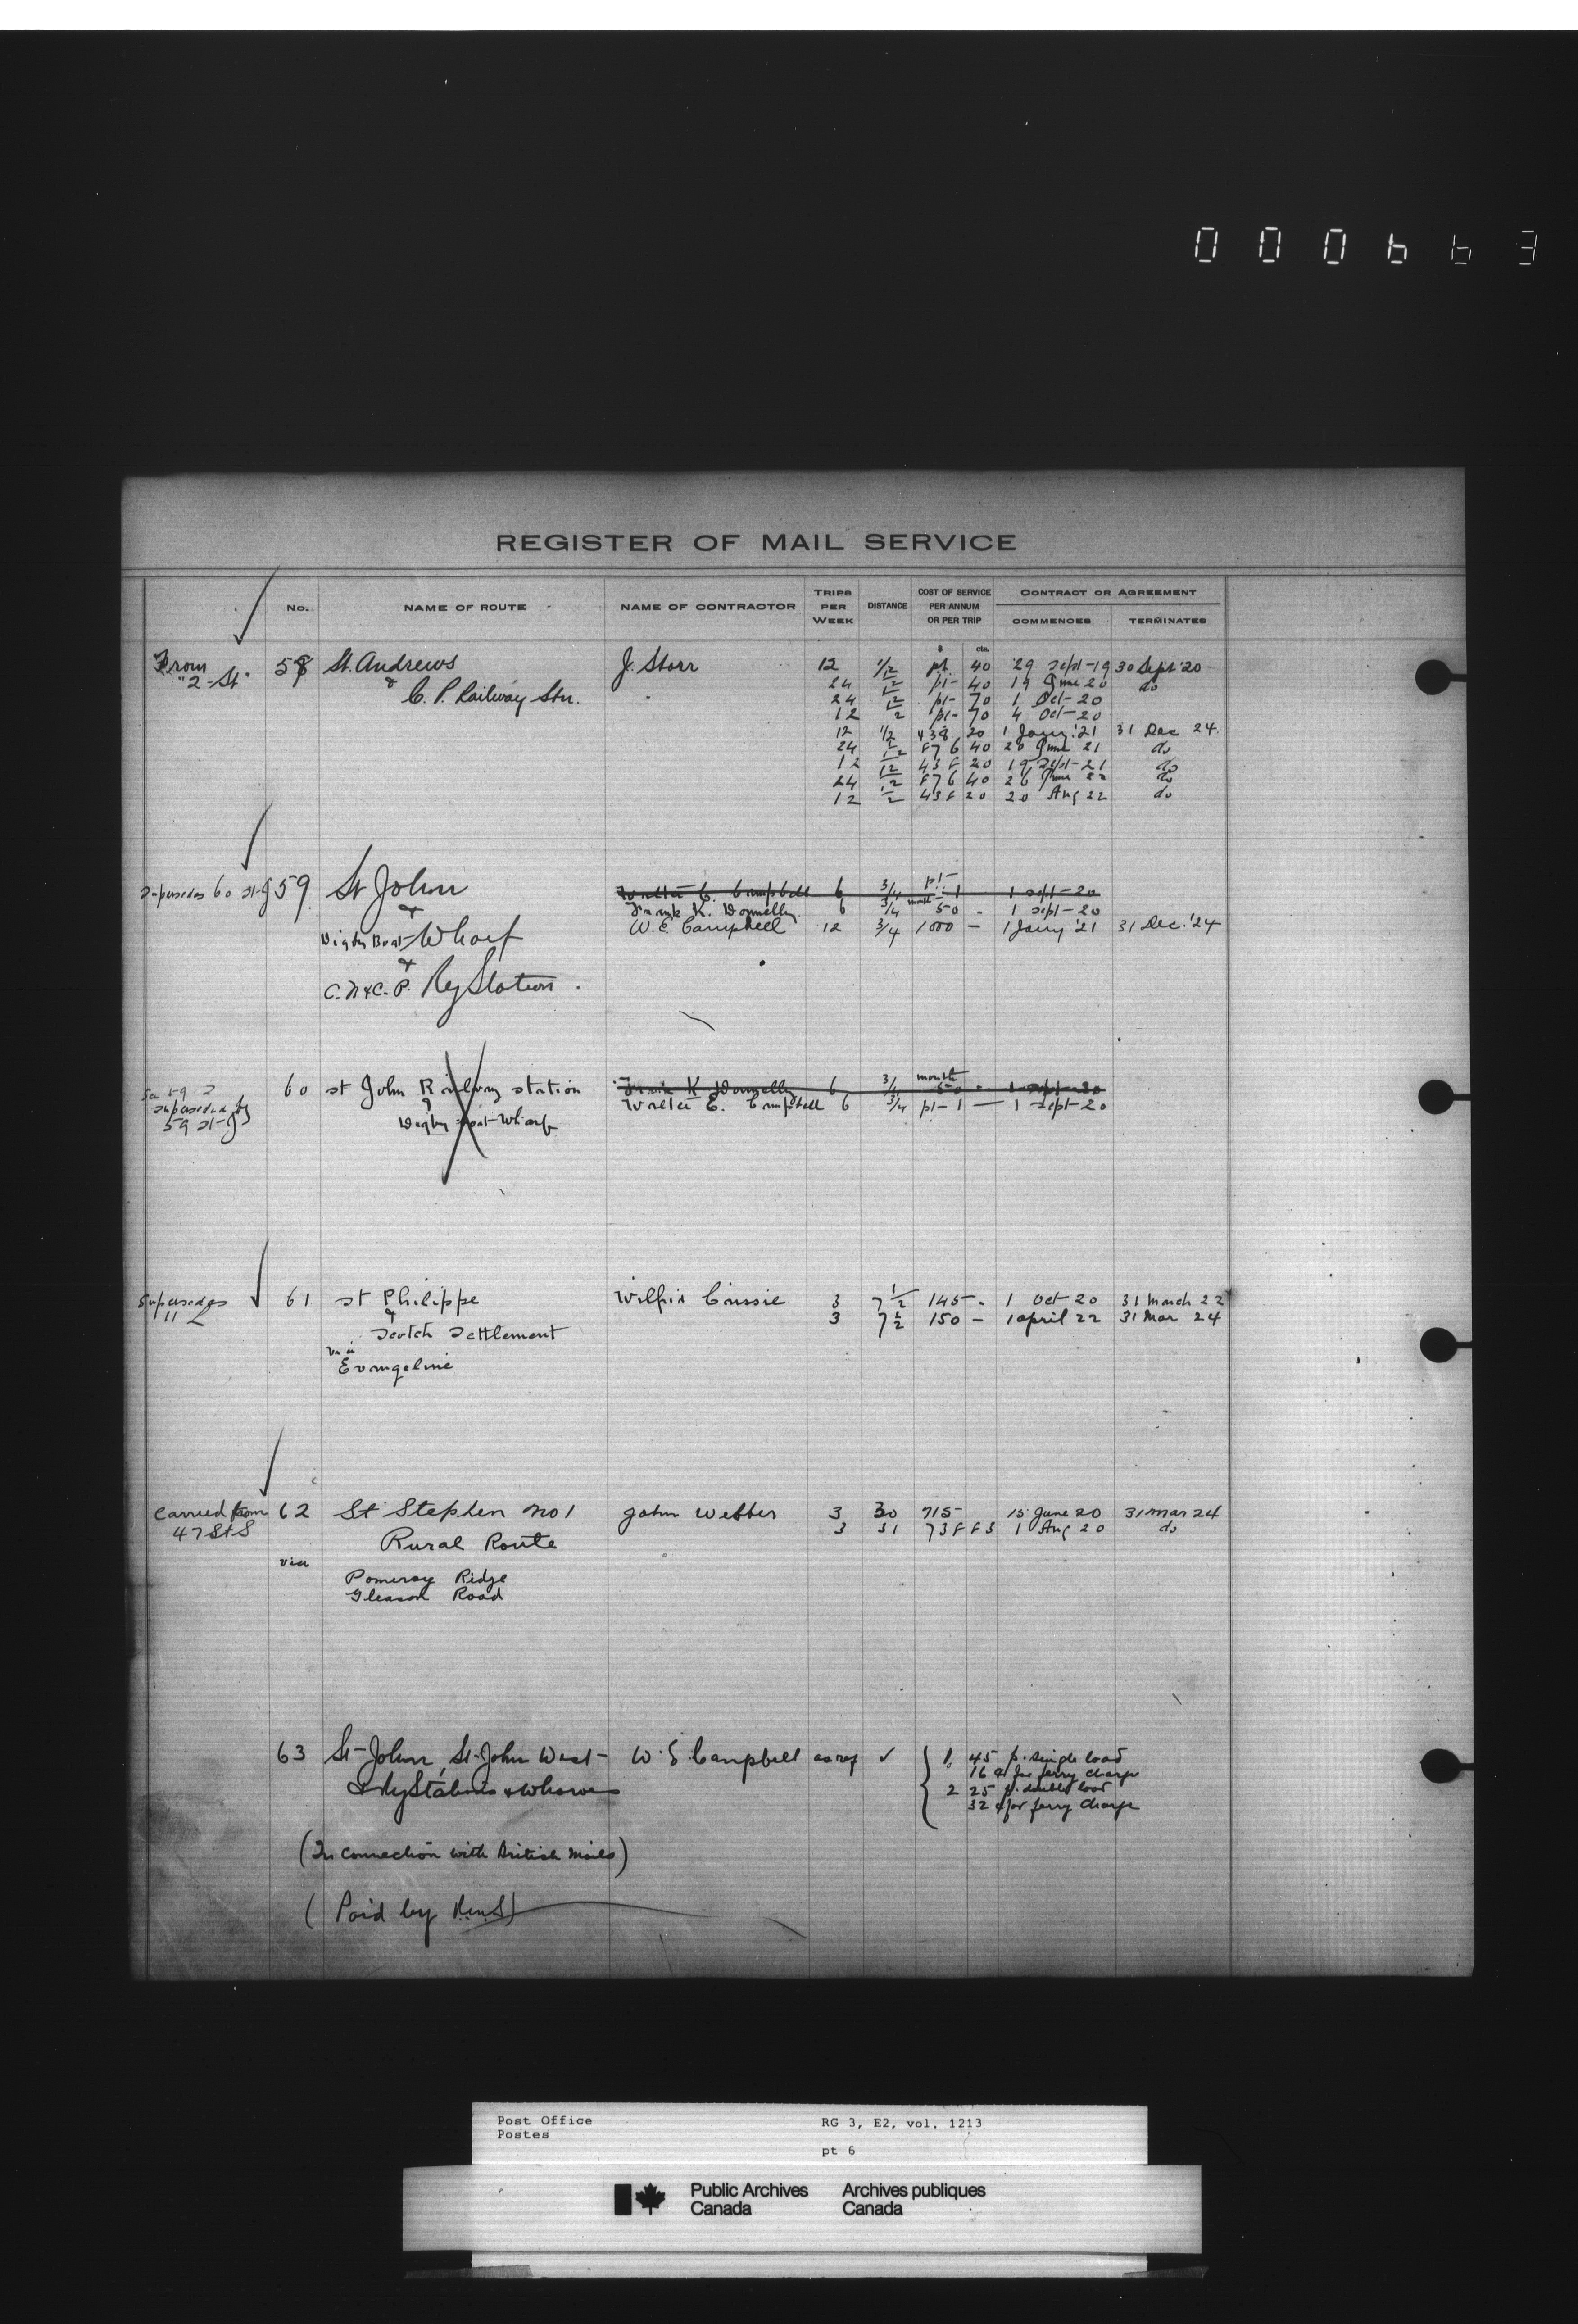 000663
REGISTER OF MAIL SERVICE
No. NAME OF ROUTE NAME OF CONTRACTOR TRIPS PER WEEK DISTANCE COST OF SERVICE PER ANNUM OR PER TRIP CONTRACT OR AGREEMENT
COMMENCES TERMINATES
$ cts.
From 58 St. Andrews J. Storr 12 1/2 pt. 40 29 Sept-19 30 Sept '20
"2-St" & C. P. Railway Stn. 24 1/2 pt- 40 19 June 20 do
24 1/2 pt- 70 1 Oct-20
12 1/2 pt- 70 4 Oct-20
12 1/2 438 20 1 Jany. '21 31 Dec 24.
24 1/2 876 40 20 June 21 do
12 1/2 438 20 19 Sept-21 do
24 1/2 876 40 26 June 22 do
12 1/2 438 20 20 Aug 22 do
Supersedes 60 St-J 59 St John Walter E. Campbell 6 3/4 pt- 1 1 Sept-20
& Frank K. Donnelly 6 3/4 month 50 - 1 Sept-20
Digby Boat Wharf W. E. Campbell 12 3/4 1000 - 1 Jany '21 31 Dec. '24
&
C. N & C. P. Ry Station.
60 St John Railway Station Frank K Donnelly 6 3/4 month 50 - 1 Sept-20
superseded by & Walter E. Campbell 6 3/4 pt- 1 - 1 Sept-20
59 St-J Digby Boat Wharf
Supersedes 61 St Philippe 3 7 1/2 145 - 1 Oct 20 31 March 22
11 L & 3 7 1/2 150 - 1 April 22 31 Mar 24
Scotch Settlement
via
Evangeline
Carried from 62 St Stephen No 1 John Webber 3 30 715 15 June 20 31 Mar 24
47 St S Rural Route 3 31 738 83 1 Aug 20 do
via
Pomeroy Ridge
Gleason Road
63 St-John, St-John West- W. E. Campbell as req ✓ 1. 45 p. single load
& Ry Stations & Wharves 16 c for ferry charge
2 25 p. double load
32 c for ferry charge
(In connection with British Mails)
(Paid by
Post Office
Postes
RG 3, E2, vol. 1213
pt 6
Public Archives
Canada
Archives publiques
Canada